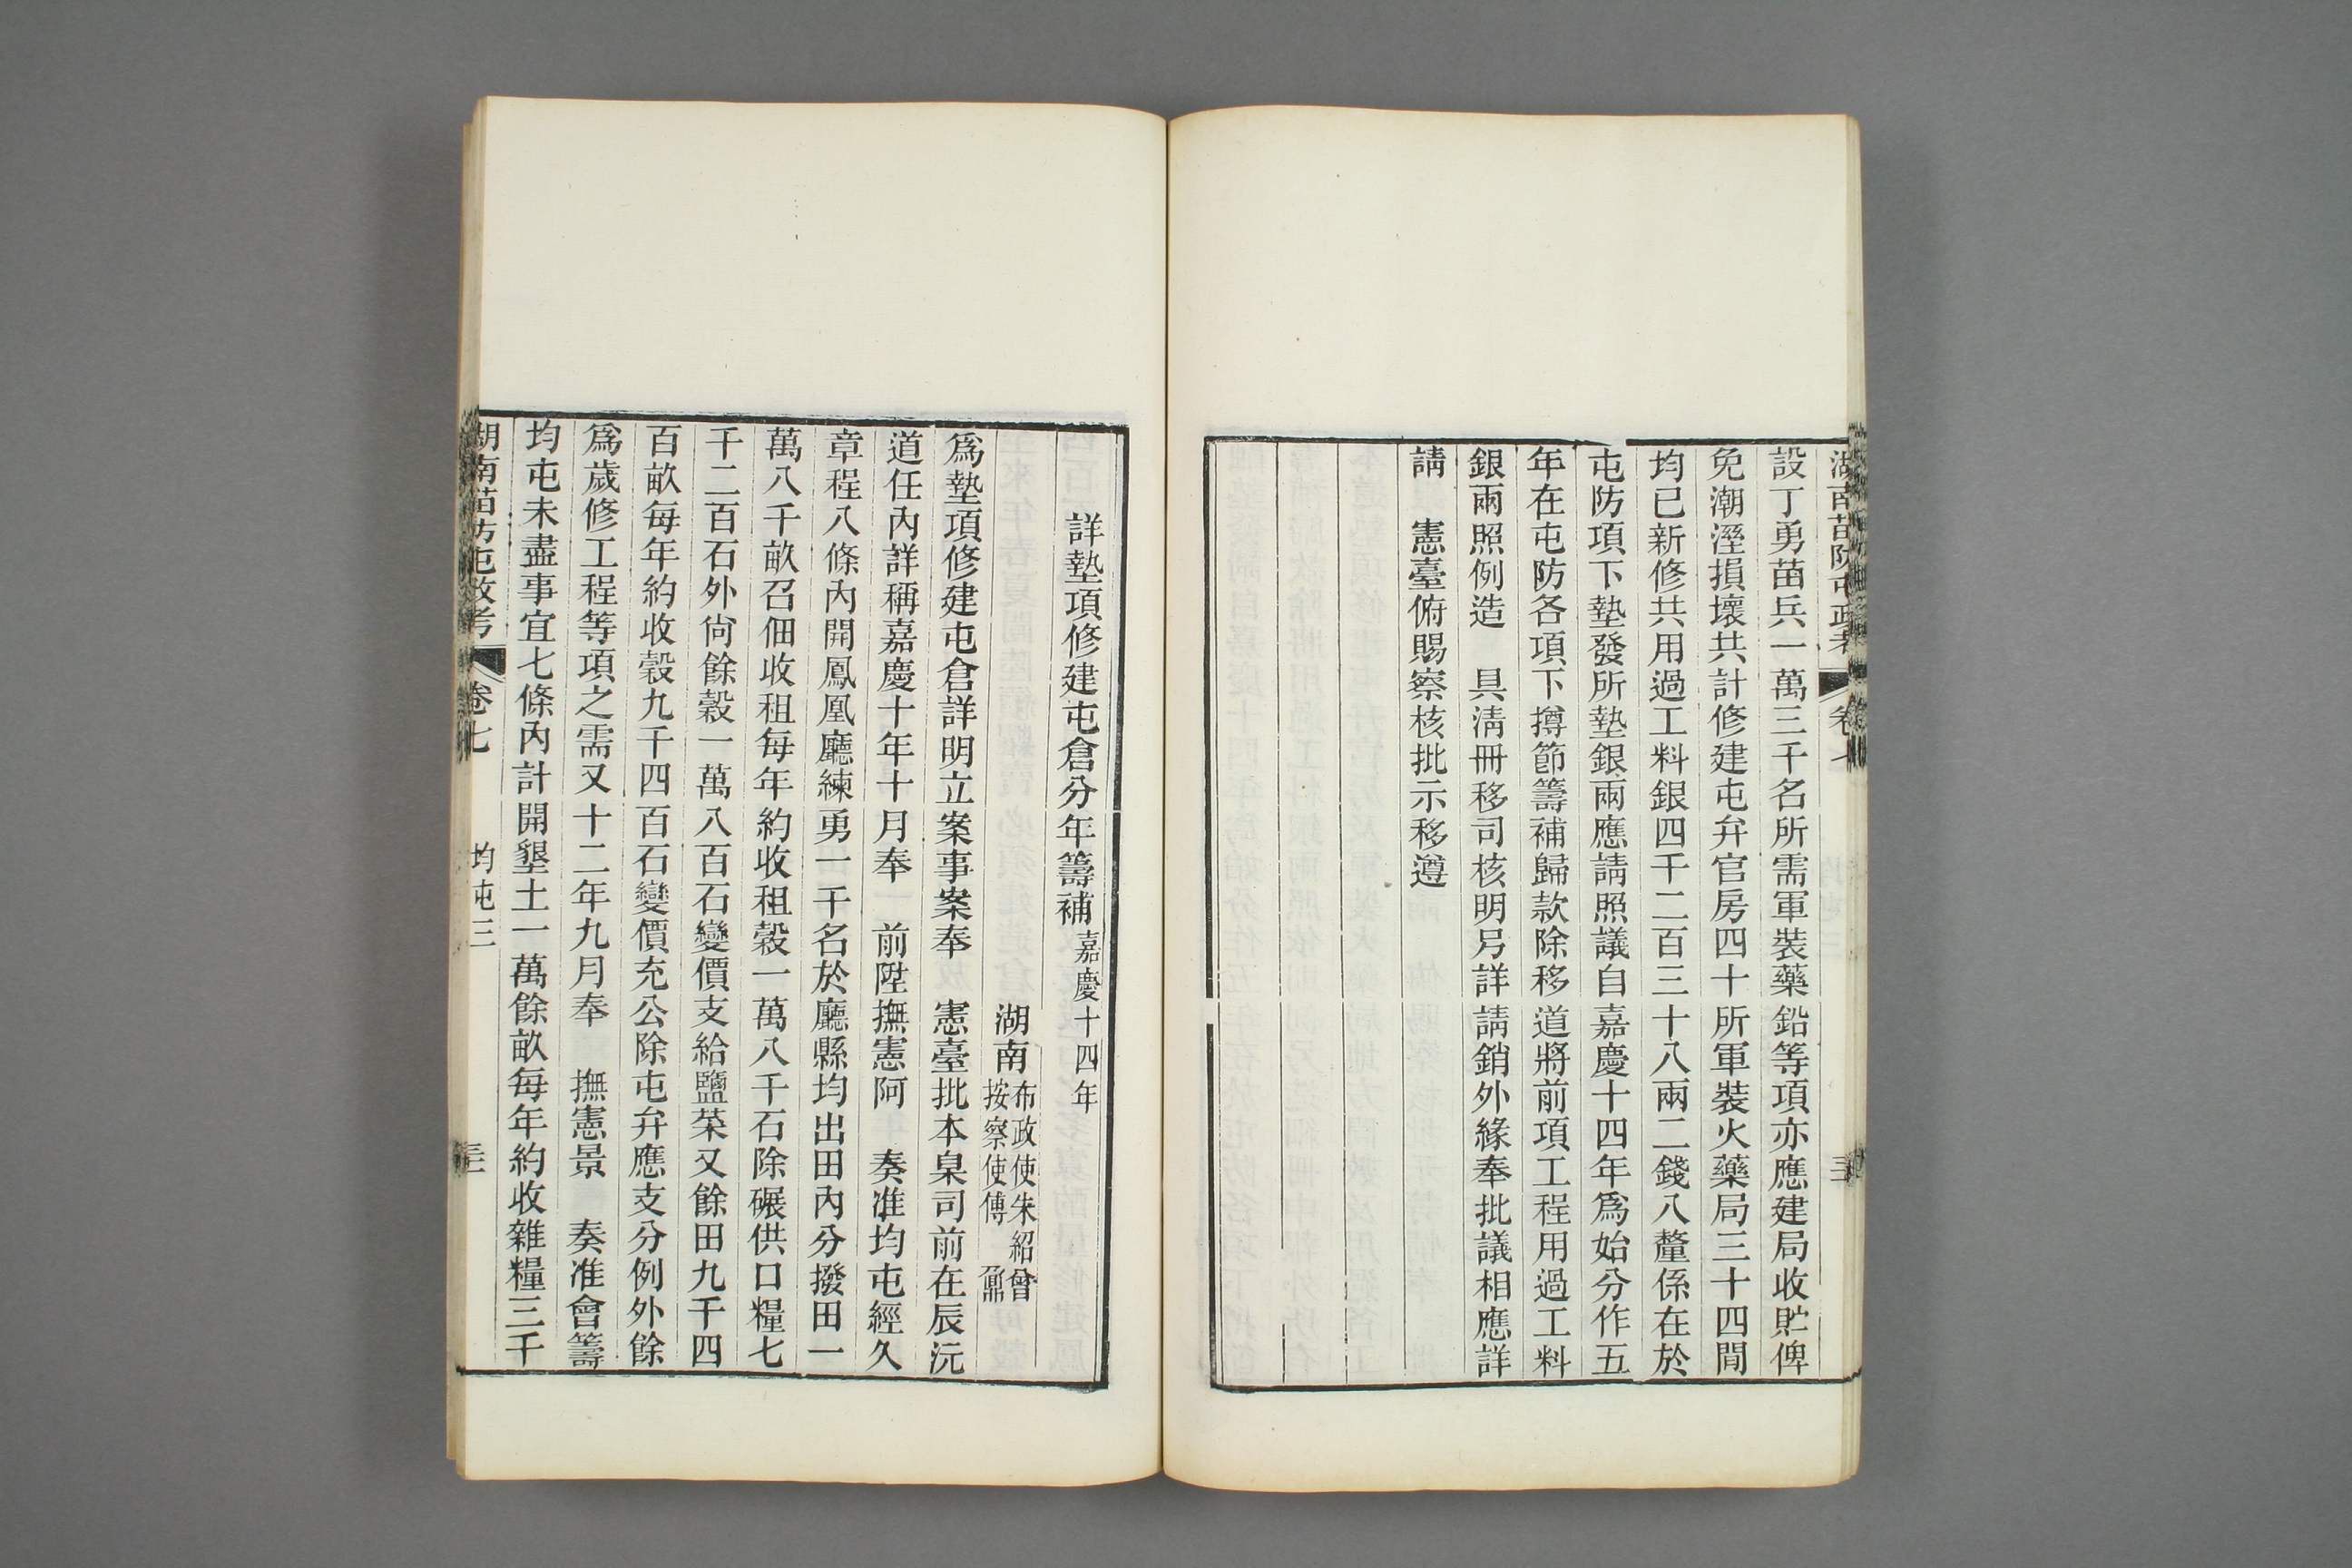 湖南苗防屯政考 卷七
設丁勇苗兵一萬三千名所需軍裝藥鉛等項亦應建局收貯俾
免潮溼損壞共計修建屯弁官房四十所軍裝火藥局三十四間
均已新修共用過工料銀四千二百三十八兩二錢八釐係在於
屯防項下墊發所墊銀兩應請照議自嘉慶十四年爲始分作五
年在屯防各項下撙節籌補歸款除移 道將前項工程用過工料
銀兩照例造 具淸冊移司核明另詳請銷外緣奉批議相應詳
請 憲臺俯賜察核批示移遵
詳墊項修建屯倉分年籌補 嘉慶十四年
湖南 布政使朱紹曾 按察使傅鼐
爲墊項修建屯倉詳明立案事案奉 憲臺批本臬司前在辰沅
道任內詳稱嘉慶十年十月奉 前陞撫憲阿 奏准均屯經久
章程八條內開鳳凰廳練勇一千名於廳縣均出田內分撥田一
萬八千畝召佃收租每年約收租穀一萬八千石除碾供口糧七
千二百石外尙餘穀一萬八百石變價支給鹽菜又餘田九千四
百畝每年約收穀九千四百石變價充公除屯弁應支分例外餘
爲歲修工程等項之需又十二年九月奉 撫憲景 奏准會籌
均屯未盡事宜七條內計開墾土一萬餘畝每年約收雜糧三千
湖南苗防屯政考 卷七 均屯三